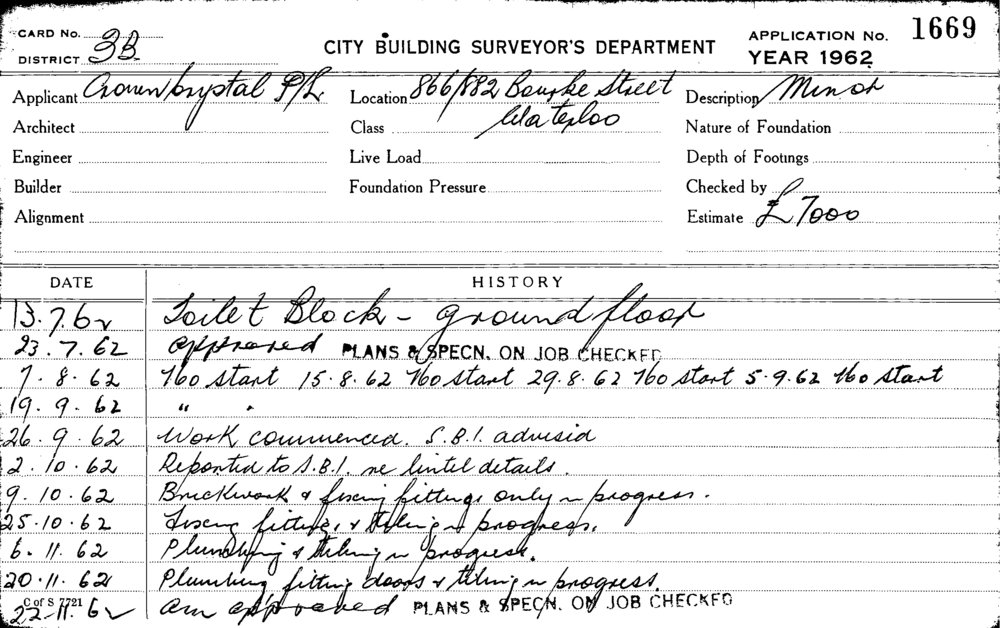 CARD No.
DISTRICT 3B
CITY BUILDING SURVEYOR'S DEPARTMENT
APPLICATION No. 1669
YEAR 1962
Applicant Crown Crystal P/L
Location 866/882 Bourke Street
Waterloo
Description Minor
Architect
Class
Nature of Foundation
Engineer
Live Load
Depth of Footings
Builder
Foundation Pressure
Checked by
Alignment
Estimate £7000
DATE HISTORY
13.7.62 Toilet Block - ground floor
23.7.62 approved PLANS & SPECN. ON JOB CHECKED
7.8.62 No start 15.8.62 No start 29.8.62 No start 5.9.62 No start
19.9.62 " "
26.9.62 Work commenced. S.B.I. advised
2.10.62 Reported to S.B.I. re lintel details.
9.10.62 Brickwork & fixing fittings only in progress.
25.10.62 Fixing fittings & tiling in progress.
6.11.62 Plumbing & tiling in progress.
20.11.62 Plumbing fitting doors & tiling in progress.
C of S 7721
22.11.62 am approved PLANS & SPECN. ON JOB CHECKED